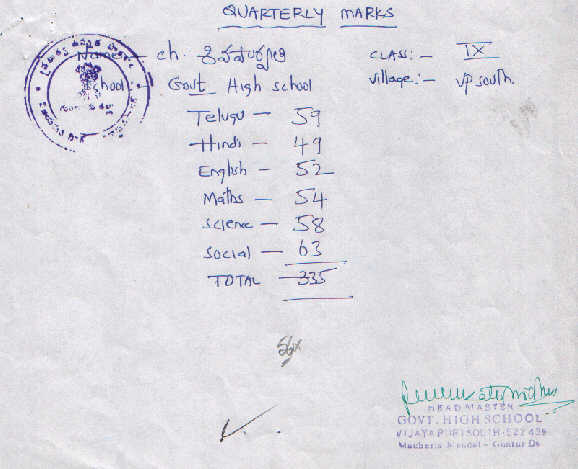 QUARTERLY MARKS
Name - ch. శివపార్వతి CLASS:- IX
School - Govt High school Village:- VP South.
Telugu - 59
Hindi - 49
English - 52
Maths - 54
Science - 58
Social - 63
TOTAL 335
56%
HEAD MASTER
GOVT. HIGH SCHOOL
VIJAYAPURI SOUTH-522 439
Macherla Mandal - Guntur Dt.